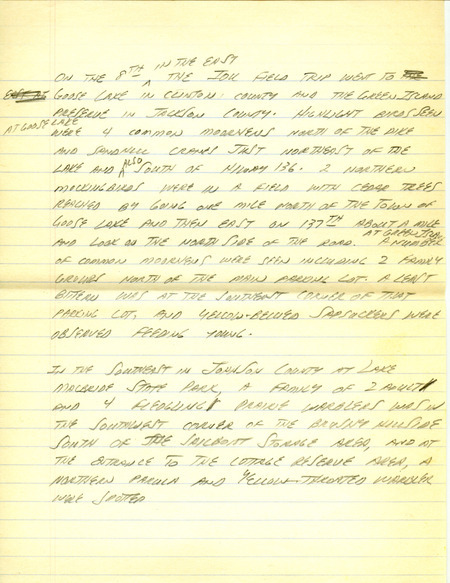 IN THE EAST
ON THE 8TH THE IOU FIELD TRIP WENT TO
GOOSE LAKE IN CLINTON COUNTY AND THE GREEN ISLAND
PRESERVE IN JACKSON COUNTY. HIGHLIGHT BIRDS SEEN
AT GOOSE LAKE
WERE 4 COMMON MOORHENS NORTH OF THE DIKE
AND SANDHILL CRANES JUST NORTHEAST OF THE
LAKE AND ALSO SOUTH OF HIWAY 136. 2 NORTHERN
MOCKINGBIRDS WERE IN A FIELD WITH CEDAR TREES
REACHED BY GOING ONE MILE NORTH OF THE TOWN OF
GOOSE LAKE AND THEN EAST ON 137TH ABOUT A MILE
AND LOOK ON THE NORTH SIDE OF THE ROAD. AT GREEN ISLAND A NUMBER
OF COMMON MOORHENS WERE SEEN INCLUDING 2 FAMILY
GROUPS NORTH OF THE MAIN PARKING LOT. A LEAST
BITTERN WAS AT THE SOUTHEAST CORNER OF THAT
PARKING LOT. AND YELLOW-BELLIED SAPSUCKERS WERE
OBSERVED FEEDING YOUNG.
IN THE SOUTHEAST IN JOHNSON COUNTY AT LAKE
MACBRIDE STATE PARK, A FAMILY OF 2 ADULT
AND 4 FLEDGLING PRAIRIE WARBLERS WAS IN
THE SOUTHWEST CORNER OF THE BRUSHY HILLSIDE
SOUTH OF THE SAILBOAT STORAGE AREA, AND AT
THE ENTRANCE TO THE COTTAGE RESERVE AREA, A
NORTHERN PARULA AND YELLOW-THROATED WARBLER
WERE SPOTTED